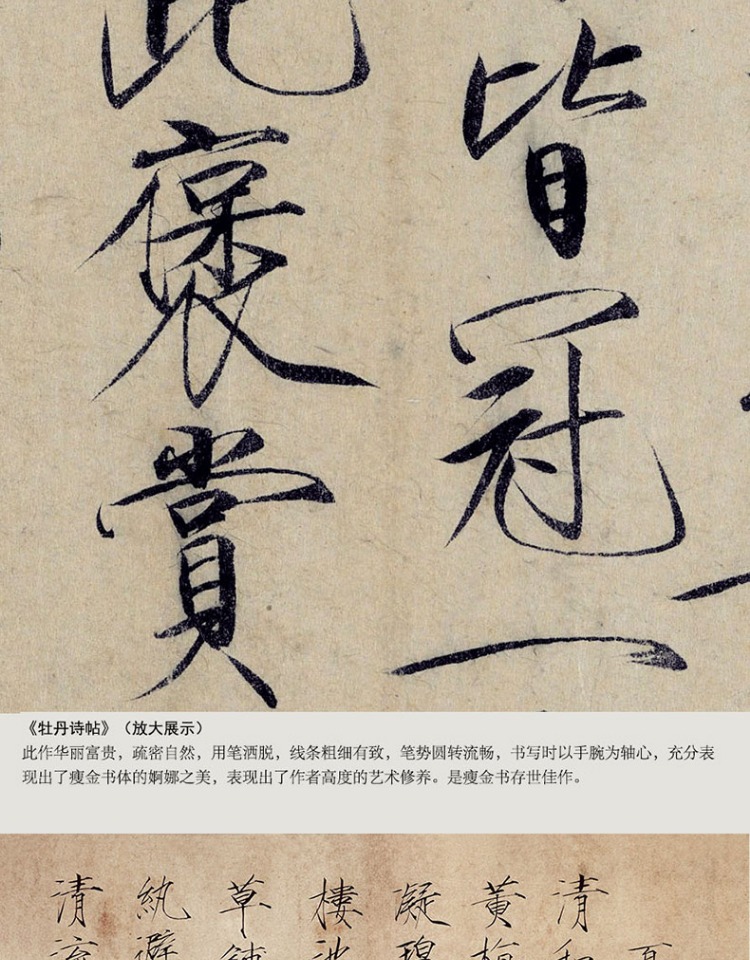 皆冠一
此褒賞
《牡丹诗帖》（放大展示）
此作华丽富贵，疏密自然，用笔洒脱，线条粗细有致，笔势圆转流畅，书写时以手腕为轴心，充分表
现出了瘦金书体的婀娜之美，表现出了作者高度的艺术修养。是瘦金书存世佳作。
清
黃
凝
樓
草
紈
清